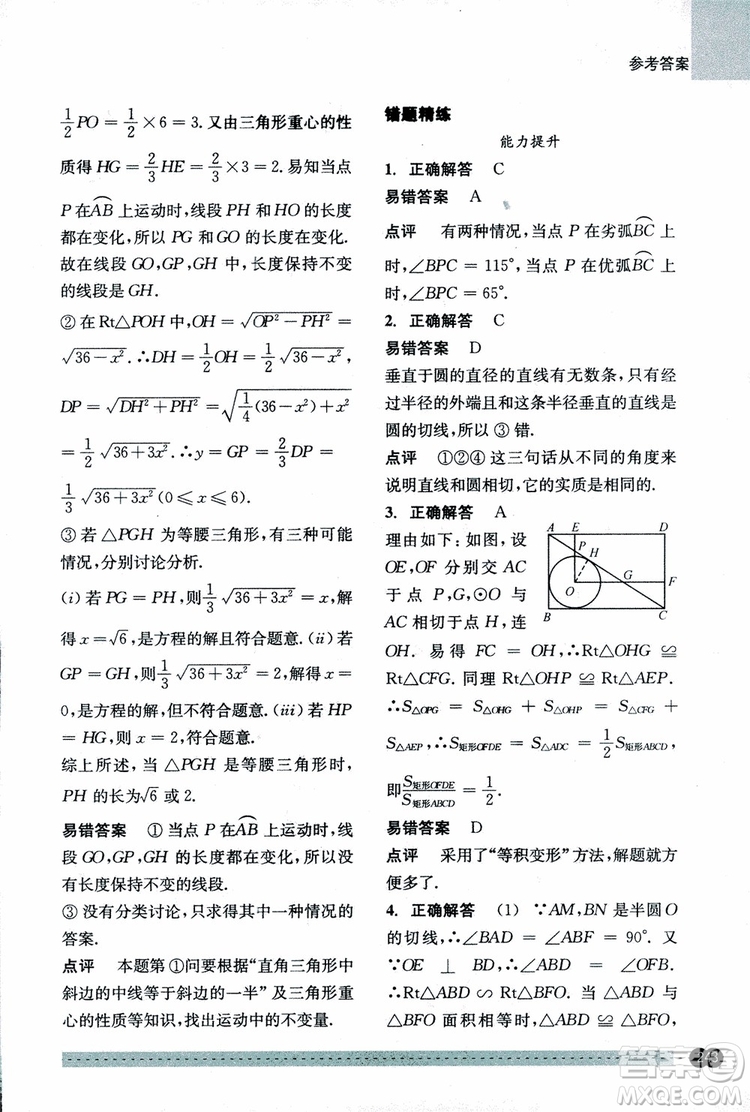 参考答案
$\frac{1}{2}PO=\frac{1}{2}×6=3$. 又由三角形重心的性
质得 $HG=\frac{2}{3}HE=\frac{2}{3}×3=2$. 易知当点
P 在$\overset{\frown}{AB}$ 上运动时,线段 PH 和 HO 的长度
都在变化,所以 PG 和 GO 的长度在变化.
故在线段 GO,GP,GH 中,长度保持不变
的线段是 GH.
② 在 Rt△POH 中,$OH=\sqrt{OP^2-PH^2}=$
$\sqrt{36-x^2}$.∴$DH=\frac{1}{2}OH=\frac{1}{2}\sqrt{36-x^2}$,
$DP=\sqrt{DH^2+PH^2}=\sqrt{\frac{1}{4}(36-x^2)+x^2}$
$=\frac{1}{2}\sqrt{36+3x^2}$.∴$y=GP=\frac{2}{3}DP=$
$\frac{1}{3}\sqrt{36+3x^2}$(0≤x≤6).
③ 若 △PGH 为等腰三角形,有三种可能
情况,分别讨论分析.
(i) 若 PG=PH,则有$\frac{1}{3}\sqrt{36+3x^2}=x$,解
得 $x=\sqrt{6}$,是方程的解且符合题意.(ii) 若
GP=GH,则$\frac{1}{3}\sqrt{36+3x^2}=2$,解得 x=
0,是方程的解,但不符合题意.(iii) 若 HP
=HG,则 x=2,符合题意.
综上所述,当 △PGH 是等腰三角形时,
PH 的长为$\sqrt{6}$ 或2.
易错答案 ① 当点 P 在$\overset{\frown}{AB}$ 上运动时,线
段 GO,GP,GH 中,三条线段都在变化,没
有长度保持不变的线段.
③ 没有分类讨论,只写其中一种情况的
答案.
点评 本题第 ①问要根据“直角三角形中
斜边的中线等于斜边的一半”及三角形重
心的性质等知识,找出运动中的不变量.
错题精练
能力提升
1. 正确解答 C
易错答案 A
点评 有两种情况,当点 P 在劣弧$\overset{\frown}{BC}$ 上
时,∠BPC=115°,当点 P 在优弧$\overset{\frown}{BC}$ 上
时,∠BPC=65°.
2. 正确解答 C
易错答案 D
垂直于圆的直径的直线有无数条,只有经
过半径的外端且和这条半径垂直的直线是
圆的切线,所以 ③ 错.
点评 ①②④ 这三句话从不同的角度来
说明直线和圆相切,它的实质是相同的.
3. 正确解答 A
理由如下:如图,设
OE,OF 分别交 AC
于点 P,G,⊙O 与
AC 相切于点 H,连
A E D
P H
G
O F
B C
OH. 易得 FC=OH,∴Rt△OHG≌
Rt△CFG. 同理 Rt△OHP≌Rt△AEP.
∴$S_{△OPG}=S_{△OHG}+S_{△OHP}=S_{△CFG}+$
$S_{△AEP}$,∴$S_{矩形OFDE}=S_{△ADC}=\frac{1}{2}S_{矩形ABCD}$,
即$\frac{S_{矩形OFDE}}{S_{矩形ABCD}}=\frac{1}{2}$.
易错答案 D
点评 采用了“等积变形”方法,解题就方
便多了.
4. 正确解答 (1) ∵AM,BN 是半圆 O
的切线,∴∠BAD=∠ABF=90°. 又
∵OE⊥BD,∴∠ABD=∠OFB.
∴Rt△ABD∽Rt△BFO. 当 △ABD 与
△BFO 面积相等时,△ABD≌△BFO,
答案圈
MXQE.COM